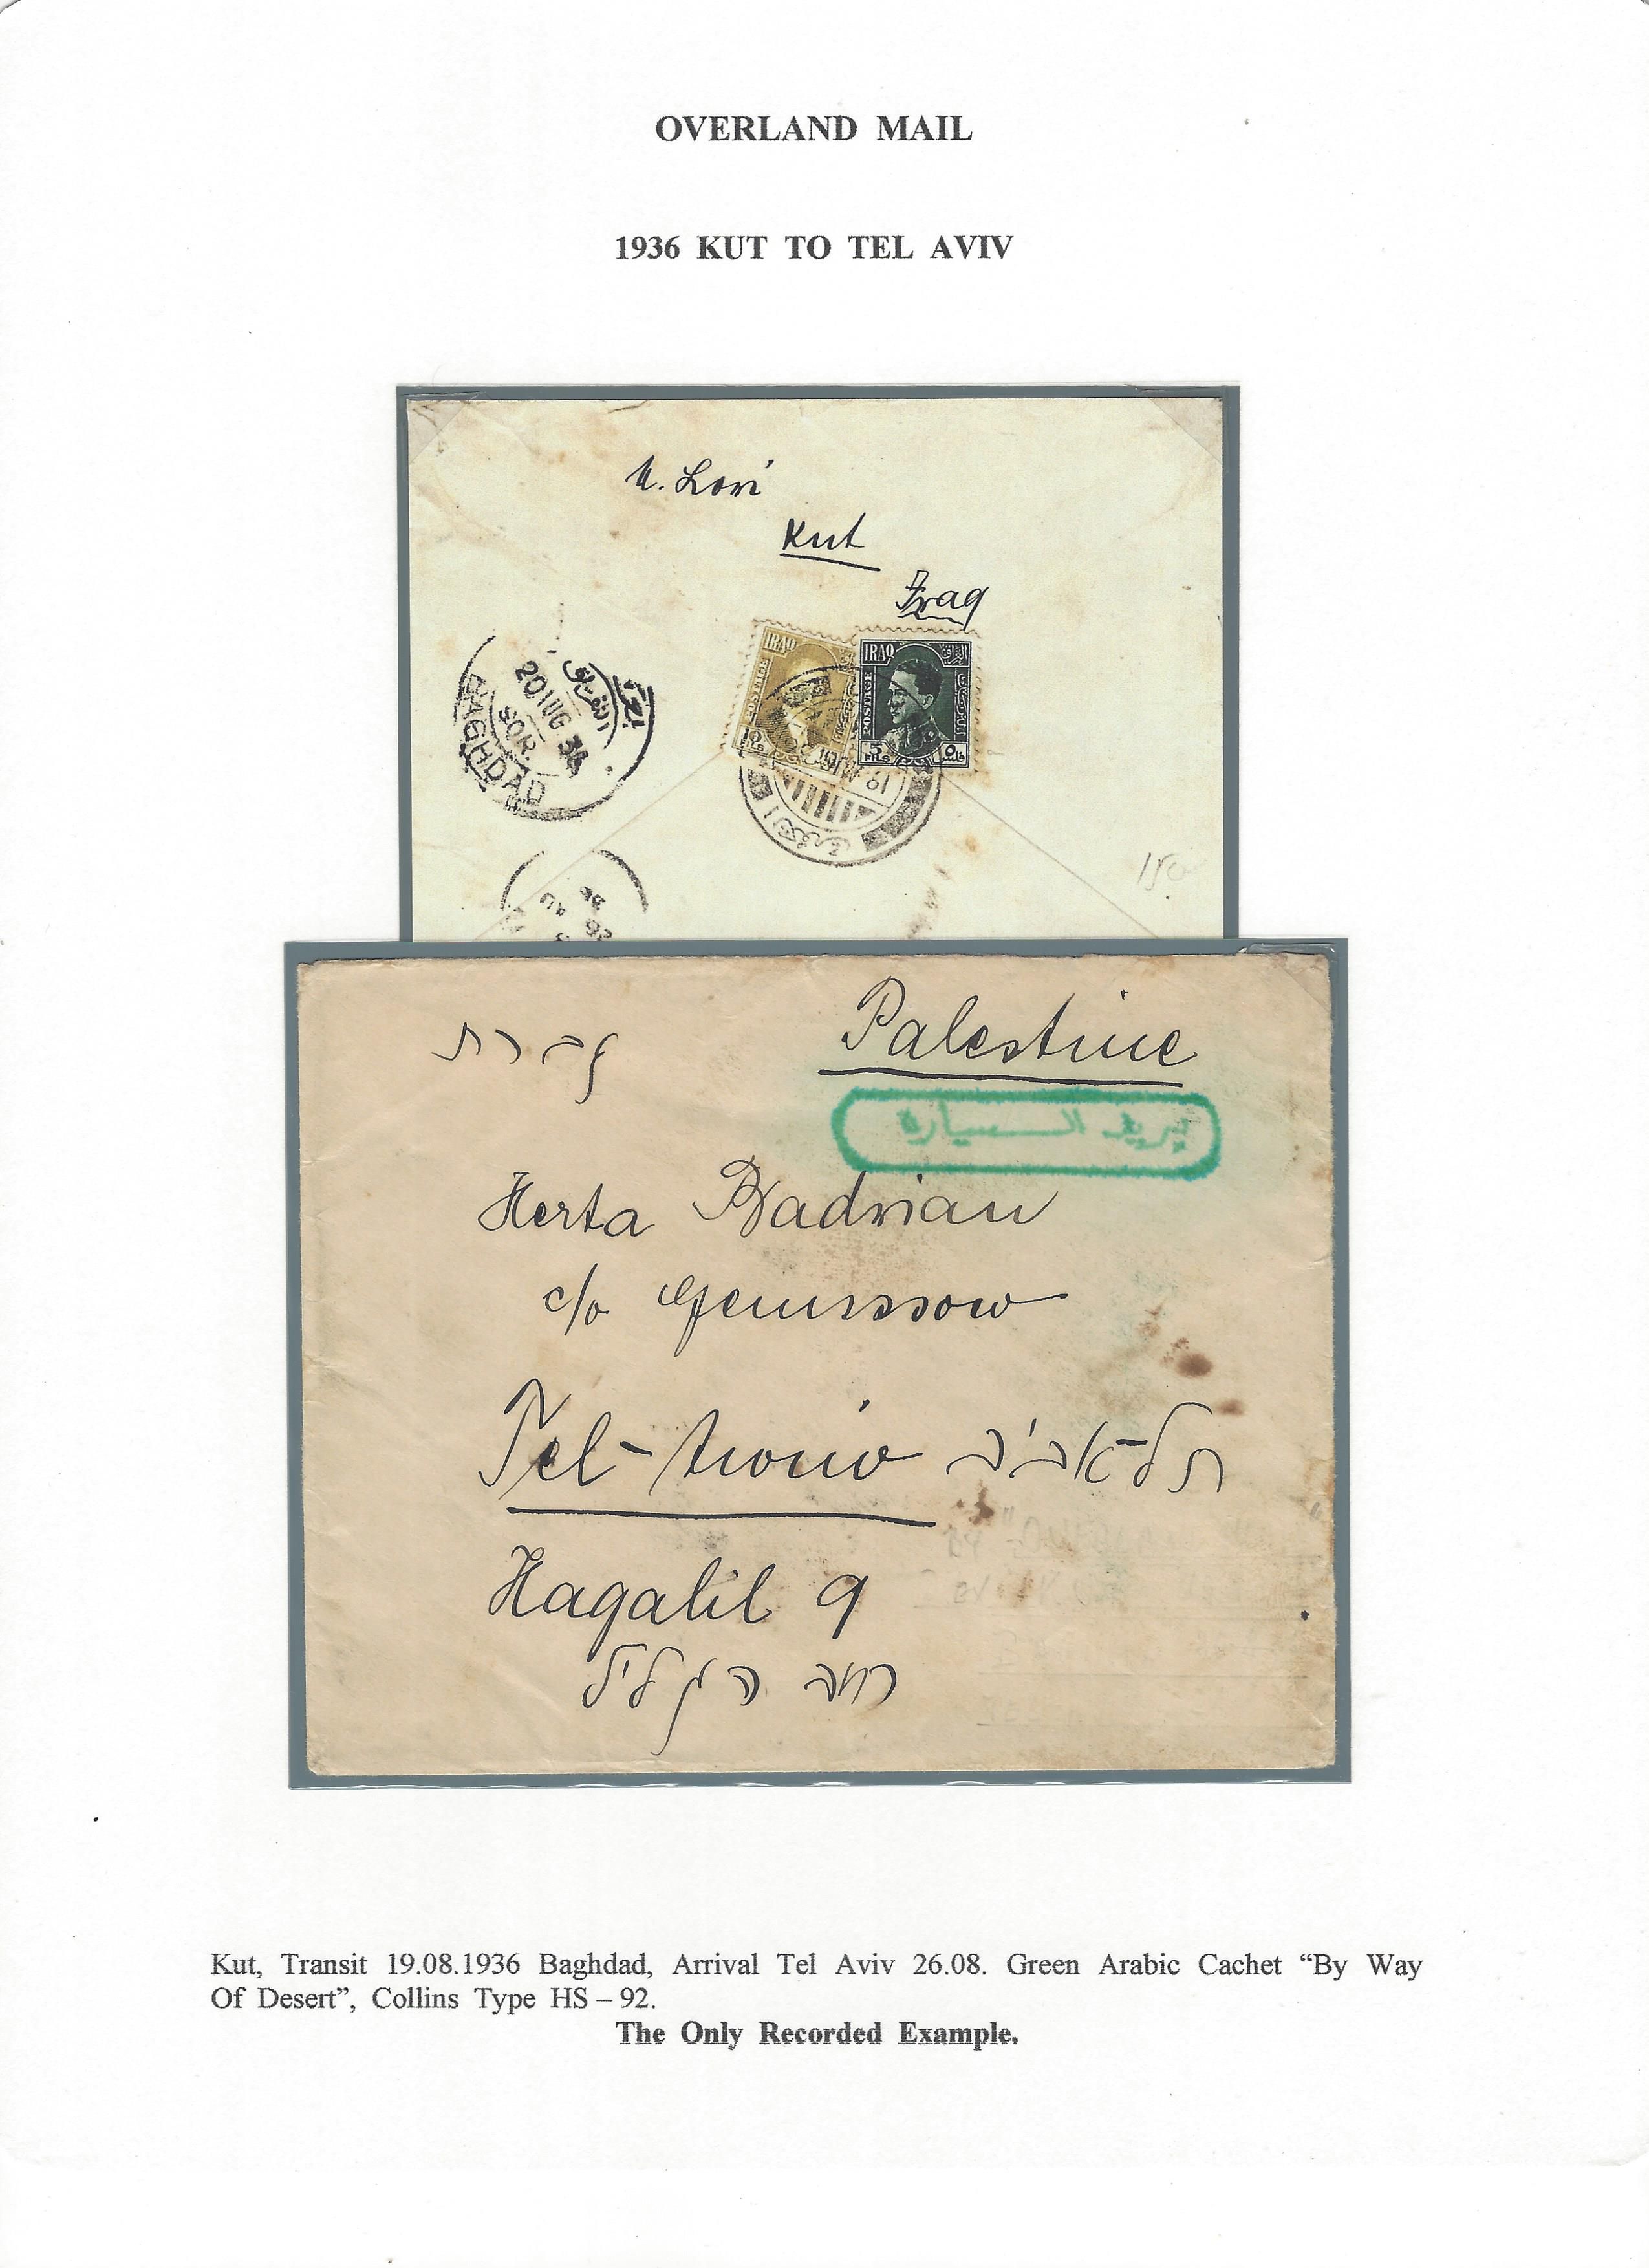 OVERLAND MAIL
1936 KUT TO TEL AVIV
Kut
Iraq
IRAQ
POSTAGE
10
FILS
IRAQ
العراق
POSTAGE
5
FILS
٥
فلس
20 AUG 36
SOR.
BAGHDAD
Palestine
بريد السيارة
Herta Badrian
c/o
Tel-Awiw תל-אביב
Hagalil 9
רחוב הגליל
Kut, Transit 19.08.1936 Baghdad, Arrival Tel Aviv 26.08. Green Arabic Cachet “By Way
Of Desert”, Collins Type HS – 92.
The Only Recorded Example.